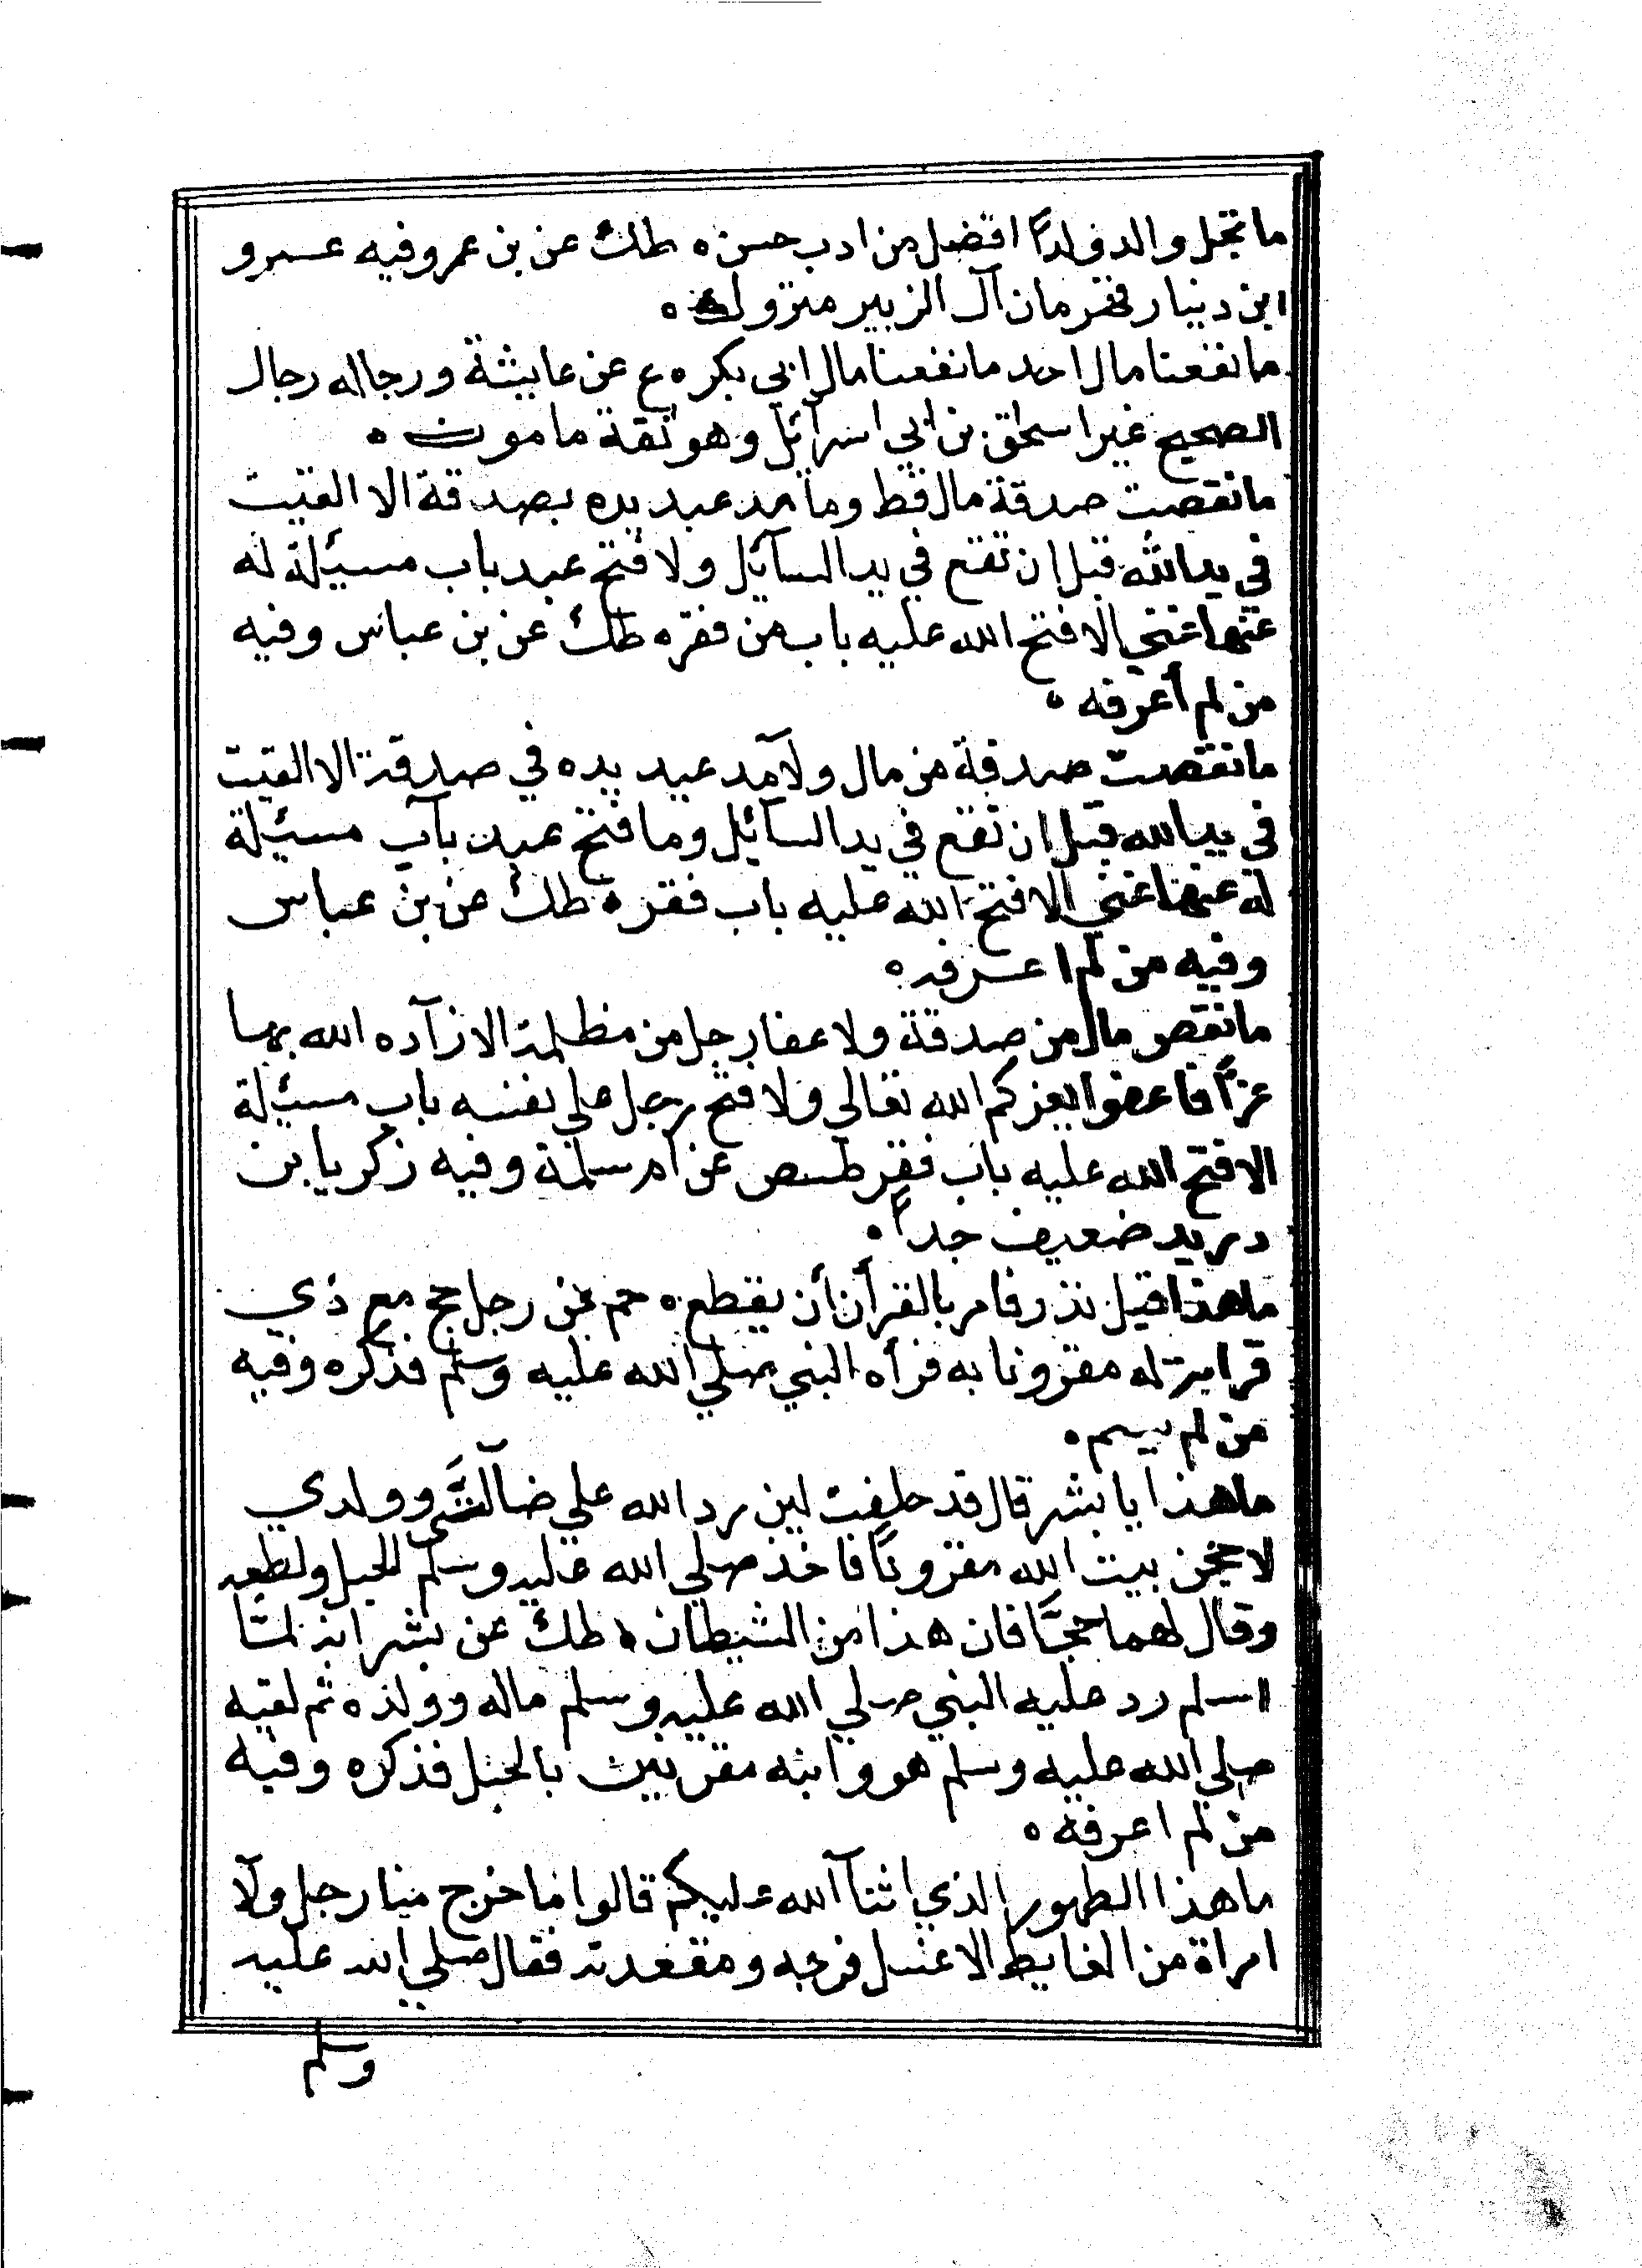 ما نحل والد ولدًا افضل من ادب حسن ه طك عن بن عمر وفيه عمرو
ابن دينار قهرمان آل الزبير متروك ه
ما نفعنا مال احد ما نفعنا مال ابي بكر ه ع عن عايشة ورجاله رجال
الصحيح غير اسحاق بن ابي اسرآئل وهو ثقة مامون ه
ما نقصت صدقة مال قط وما مد عبد يده بصدقة الا القيت
في يد الله قبل ان تقع في يد السآئل ولا فتح عبد باب مسئلة له
عنها غني الا فتح الله عليه باب من فقر ه طك عن بن عباس وفيه
من لم أعرفه ه
ما نقصت صدقة من مال ولا مد عبد يده في صدقة الا القيت
في يد الله قبل ان تقع في يد السآئل وما فتح عبد باب مسئلة
له عنها غني الا فتح الله عليه باب فقر ه طك عن بن عباس
وفيه من لم اعرفه ه
ما نقص مال من صدقة ولا عفا رجل من مظلمة الا زآده الله بها
عزًا فاعفوا يعزكم الله تعالي ولا فتح رجل علي نفسه باب مسئلة
الا فتح الله عليه باب فقر طسص عن ام سلمة وفيه زكريا بن
دريد ضعيف جدًا ه
ما هذا قيل نذر فامر بالقرآن أن يقطع ه حم عن رجل حج مع ذي
قرابة له مقرونا به فرأه النبي صلي الله عليه وسلم فذكره وفيه
من لم يسم ه
ما هذا يا بشر قال قد حلفت لين رد الله علي ضآلتي وولدي
لاحجن بيت الله مقرونًا فاخذ صلي الله عليه وسلم الحبل ولطعه
وقال لهما حجَّا فان هذا من الشيطان ه طك عن بشر انه لمّا
اسلم رد عليه النبي صلي الله عليه وسلم ماله وولده ثم لقيه
صلي الله عليه وسلم هو وابنه مقرنين بالحبل فذكره وفيه
من لم اعرفه ه
ما هذا الطهور الذي اثنآ الله عليكم قالوا ما خرج منا رجل ولآ
امراة من الغايط الا غسل فرجه ومقعدته فقال صلي الله عليه
وسلم